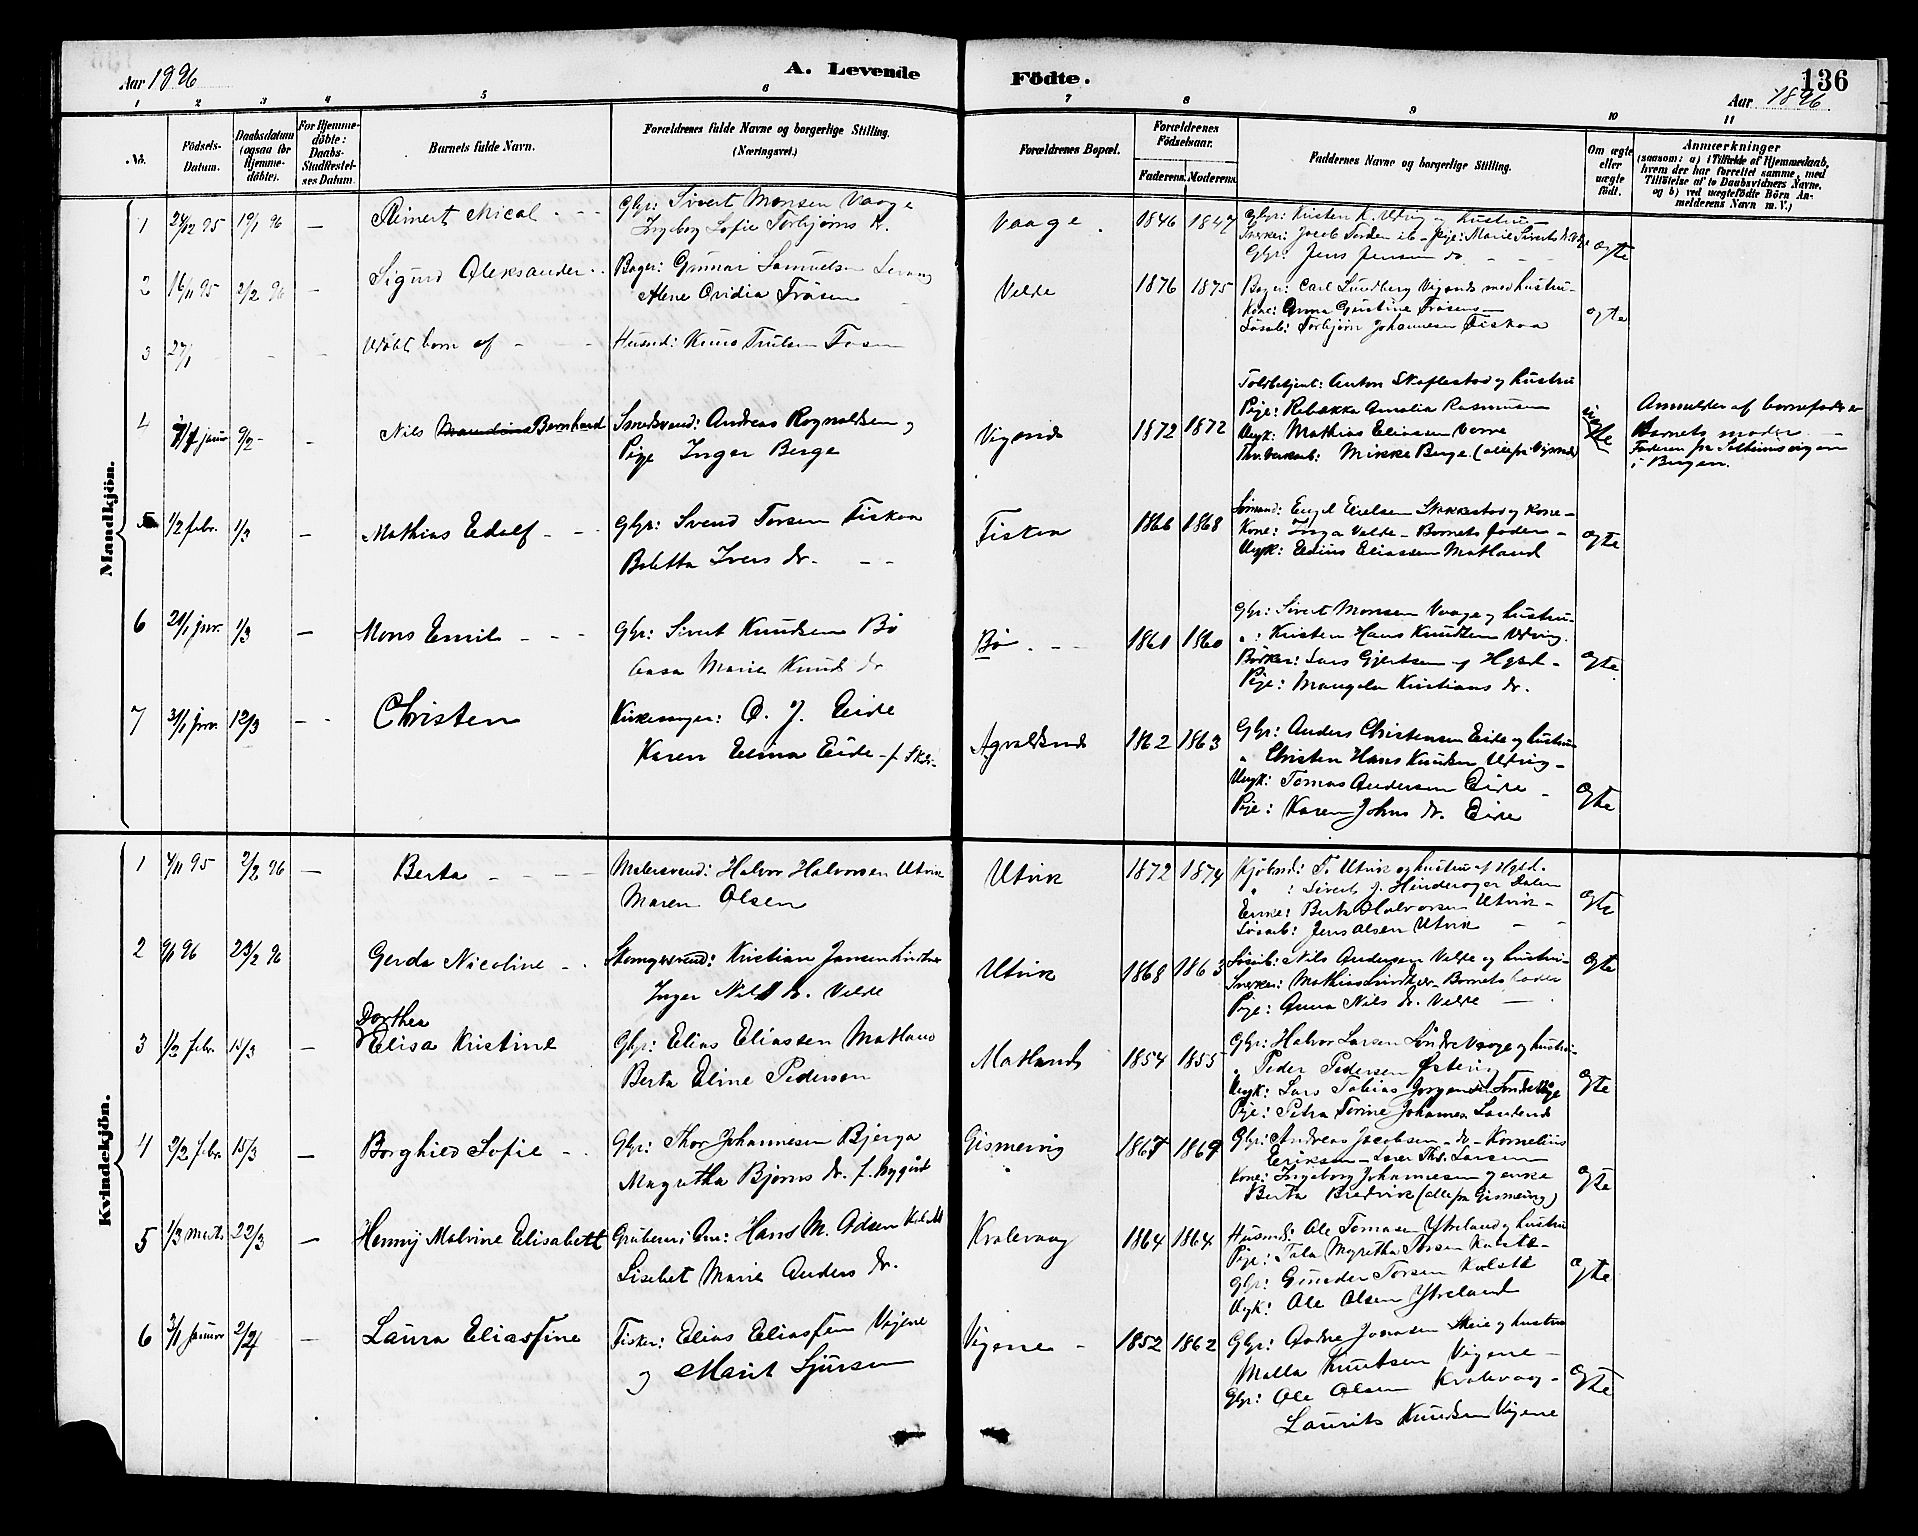 136
Aar 1896
A. Levende
Födte.
Aar 1896
1 2 3 4 5 6 7 8 9 10 11
No.
Födsels-Datum.
Daabsdatum (ogsaa för Hjemme-döbte).
For Hjemme-döbte: Daabs-Stadfæstel-ses Datum.
Barnets fulde Navn.
Forældrenes fulde Navne og borgerlige Stilling. (Næringsvei.)
Forældrenes Bopæl.
Forældrenes Födselsaar.
Faderens. Moderens.
Faddernes Navne og borgerlige Stilling.
Om ægte eller uægte födt.
Anmærkninger
(saasom: a) i Tilfælde af Hjemmedaab, hvem der har forrettet samme, med Tilföielse af to Daabsvidners Navne, og b) ved uægtefödte Börn An-melderens Navn m. V.)
Mandkjön.
1 27/12 95 19/1 96 — Reinert Mical - - Gbr: Sivert Monsen Vaage
Ingeborg Sofie Torbjørns d.
Vaage 1846 1847 Gbr: Kristen K. Udvig og hustru
Snekker: Jacob Torden
Gbr: Jens Jensen do
ægte
2 16/11 95 2/2 96 — Sigurd Aleksander Bager: Gunnar Samuelsen
Alene Ovidia Frøsen
Velde 1876 1875 Bager: Carl Lundberg Vigsnds med hustru
Kone: Anna Gustine Frøsen
Løsarb: Torbjørn Johannesen Fiskaa
ægte
3 27/1 - - Udøbt barn af - - Husmd: Knud Trulsen Fosen
4 7/1 januar 9/2 - Nils Bernhard Smedsvend: Andreas Rognaldsen og
Pige Inger Berge
Vigsnds 1872 1872 Toldbetjent: Anton Skaftestad og hustru
Pige: Rebekka Amalia Rasmussen
Ungk: Mathias Eliassen Vorre
Mikke Berge (alle fra Vigsnds)
uægte
Anmelder af barnefader er
Barnets moder
Faderen fra Solheimsvigen
i Bergen.
5 1/2 febr. 1/3 — Mathias Edolf - - Gbr: Svend Torsen Fiskaa
Boletta Ivers dr. - -
Fiskaa 1866 1868 Sømand: Engel Eielsen Stokkestad og kone -
Kone: Inga Velde - Barnets fader -
Ungk: Edias Eliassen Matland
ægte
6 21/1 jnr. 1/3 — Mons Emil - - - Gbr: Sivert Knudsen Bø
Aasa Marie Knuds dr
Bø - - 1861 1860 Gbr: Sivert Monsen Vaage og hustru
„: Kristen Hans Knudsen Udvig.
Bødker: Lars Gjertsen af Hgsd -
Pige: Mangela Kristians dr.
ægte
7 31/1 jnr. 12/3 - - Christen Kirkesanger: O. J. Eide
Karen Elina Eide - f. Skei
Agvaldsnds 1862 1863 Gbr: Anders Christensen Eide og hustru
„ Christen Hans Knudsen Udvig -
Ungk: Tomas Andersen Eide -
Pige: Karen Johns dr. Eide
ægte
Kvindekjön.
1 4/11 95 2/2 96 — Berta - - - - Malersvend: Halvor Halvorsen Utvik
Maren Olsen
Utvik 1872 1874 Kjøbmd: T. Utvik og hustru af Hgsd.
„: Sivert J. Hinderager Dalen
Enke: Berta Halvorsen Utvik -
Løsarb: Jens Olsen Utvik - -
ægte
2 9/1 96 23/2 96 Gerda Nicoline - - Kristian Jansen Lindtner
Inger Nils dr. Velde
Utvik 1868 1863 Løsarb: Nils Andersen Velde og hustru
Snekker: Mathias Lindtner - Barnets fader
Pige: Anna Nils dr. Velde —
ægte
3 1/2 febr. 15/3 — Dorthea
Elisa Kristine Gbr: Elias Eliassen Matland
Berta Eline Pedersen
Matlands 1854 1855 Gbr: Halvor Larsen Søndre Vaage og hustru
„ Peder Pedersen Østevig
Ungk: Lars Tobias Jørgensen Søndre Våge
Pige: Petra Torine Johannes. Sandnds
ægte
4 2/2 febr 15/3 — Borghild Sofie - - Gbr: Thor Johannesen Bjerga
Magretha Bjørns dr. f. Nygård
Gismervig 1867 1869 Gbr: Andreas Jacobsen - do - Kornelius
Eriksen - Lars Ths. Larsen
Kone: Ingeborg Johannesen og enke
Berta Bredvik (alle fra Gismervig)
ægte
5 1/3 marts 22/3 — Henny Malvine Elisabett Grubemi Arb: Hans M. Adsen
Lisebet Marie Anders dr.
Kvalevaag 1864 1864 Husmd: Ole Tomasen Ytreland og hustru
Pige: Tala Mgretha Torsen Kolstø -
Gbr: Gunder Torsen Kolstø
Ungk: Ole Olsen Ytreland
ægte
6 3/1 januar 2/2 — Laura Eliassine Fisker: Elias Eliassen Vigene
og Marit Sjursen
Vigene - 1852 1862 Gbr: Andre Jonasen Skeie og hustru
Malla Knutsen Vigene -
Gbr: Ole Olsen Kvalevaag -
Laurits Knudsen Vigene
ægte